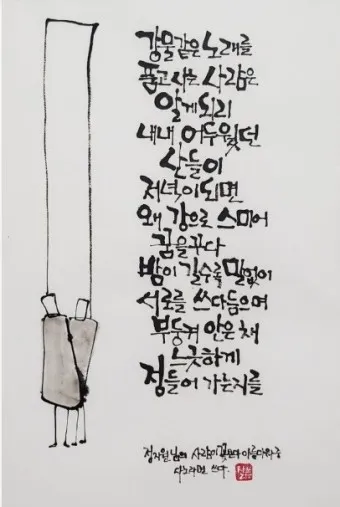 강물같은 노래를
품고 사는 사람은
알게 되리
내내 어두웠던
산들이
저녁이 되면
왜 강으로 스미어
꿈을 꾸다
밤이 길수록 말없이
서로를 쓰다듬으며
부둥켜 안은 채
느긋하게
정들어 가는지를
정지원님의 사람이 꽃보다 아름다워 중
쓰다.